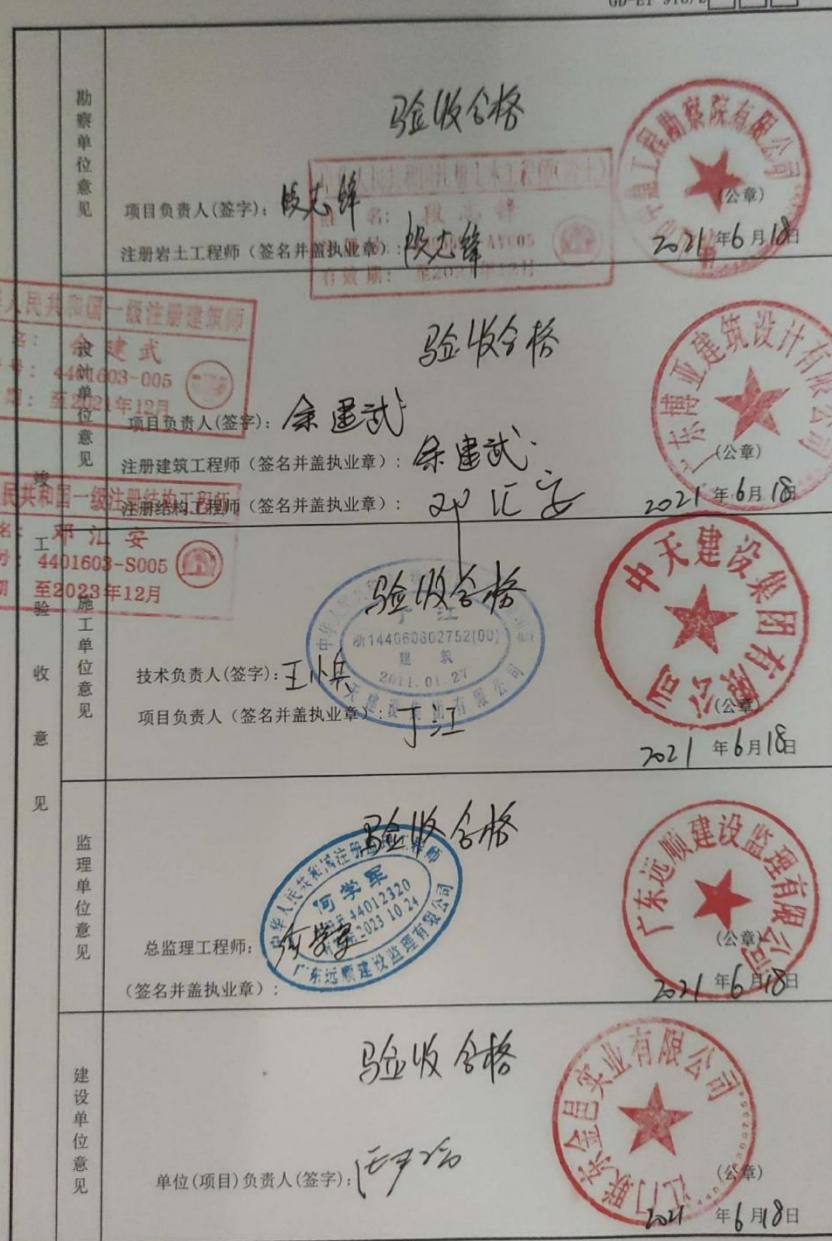 竣工验收意见
勘察单位意见
验收合格
项目负责人(签字)：段志锋
姓 名： 段志锋
注册岩土工程师（签名并盖执业章）：段志锋
工程勘察院有限公司
(公章)
2021年6月18日
设计单位意见
人民共和国一级注册建筑师
余建武
4401603-005
至2021年12月
验收合格
项目负责人(签字)：余建武
注册建筑工程师（签名并盖执业章）：余建武
注册结构工程师（签名并盖执业章）：邓汇安
广东博亚建筑设计有限公司
(公章)
2021年6月18日
民共和国一级注册结构工程师
邓汇安
4401603-S005
至2023年12月
施工单位意见
验收合格
丁江
浙144060802752(00)
建 筑
2011.01.27
技术负责人(签字)：王小兵
项目负责人（签名并盖执业章）：丁江
中天建设集团有限公司
(公章)
2021年6月18日
监理单位意见
验收合格
中华人民共和国注册监理工程师
何学军
44012320
2023 10 24
广东远顺建设监理有限公司
总监理工程师：何学军
（签名并盖执业章）：
广东远顺建设监理有限公司
(公章)
2021年6月18日
建设单位意见
验收合格
单位(项目)负责人(签字)：
江门联东金邑实业有限公司
(公章)
2021年6月18日